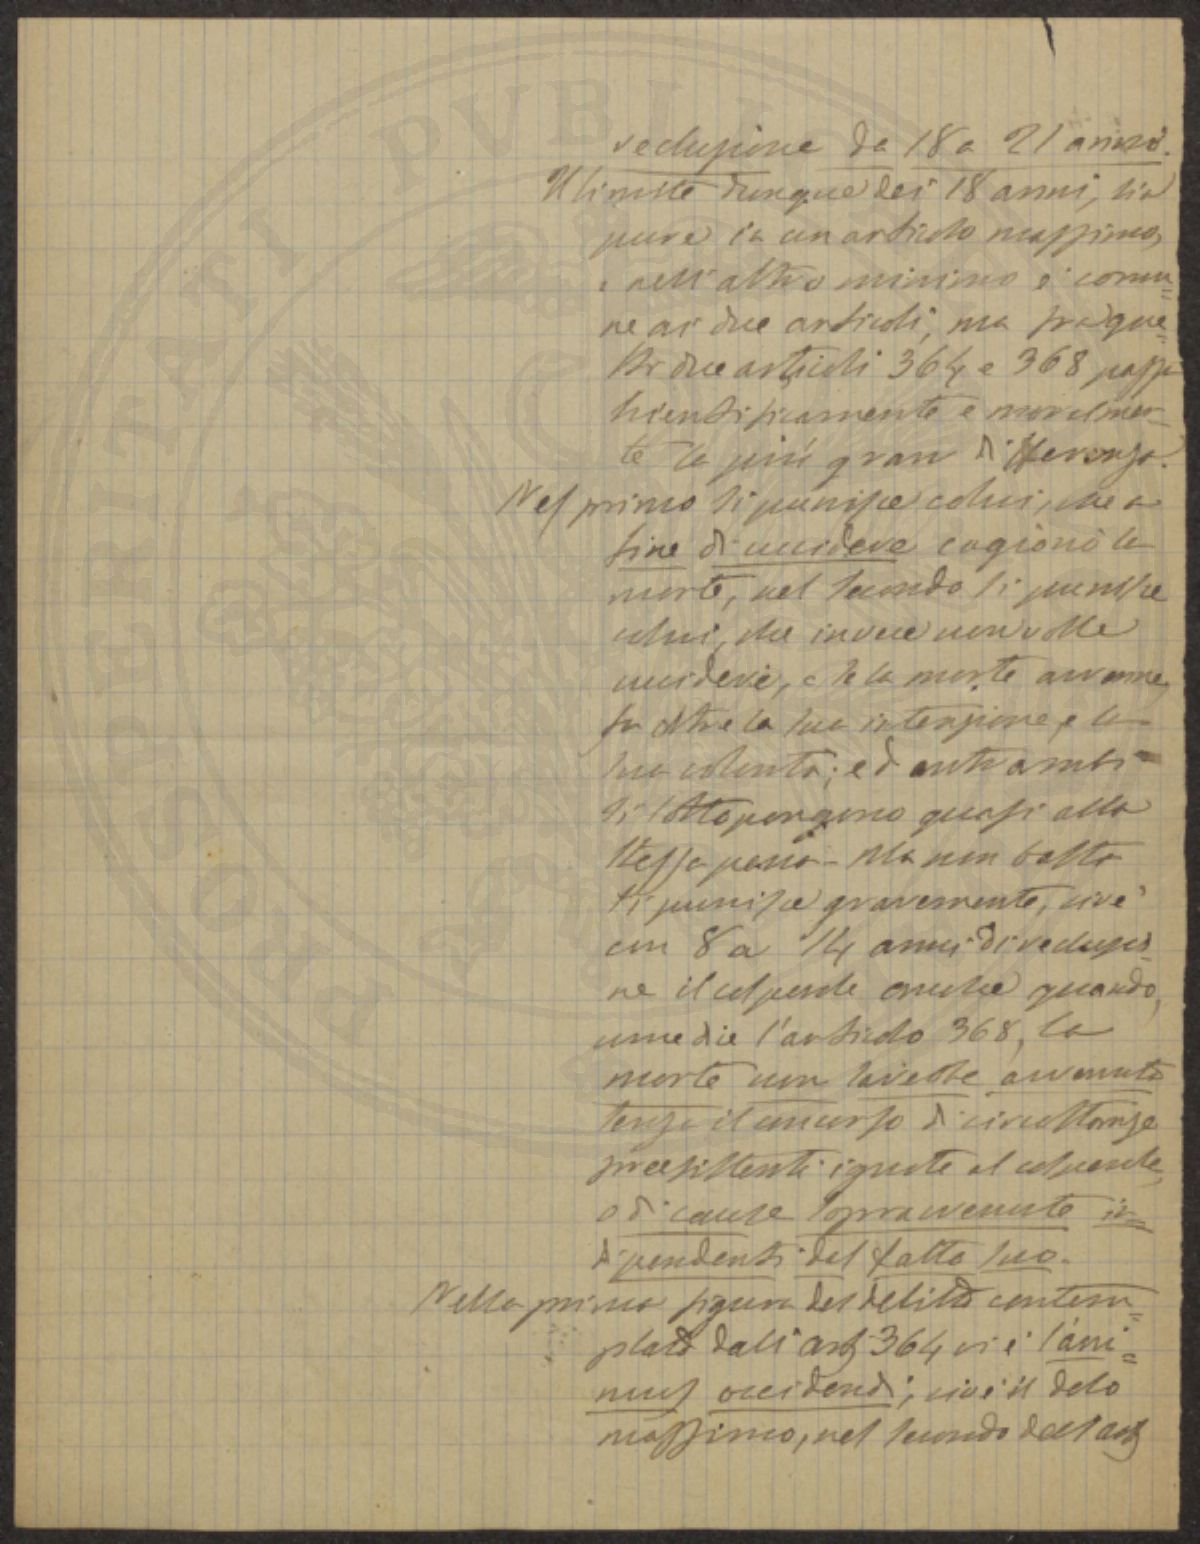 reclusione da 18 a 21 anni.
Il limite dunque dei 18 anni, sia
pure in un articolo massimo,
e nell'altro minimo è comu=
ne ai due articoli, ma fra que=
sti due articoli 364 e 368 passa
scientificamente e moralmen-
te la più gran differenza.
Nel primo si punisce colui, che a
fine di uccidere cagionò la
morte, nel secondo si punisce
colui, che invece non volle
uccidere, e se la morte avvenne,
fu oltre la sua intenzione, e la
sua volontà; ed entrambi
si sottopongono quasi alla
stessa pena - Ma non basta
si punisce gravemente, cioè
con 8 a 14 anni di reclusio-
ne il colpevole anche quando,
come dice l'articolo 368, la
morte non sarebbe avvenuta
senza il concorso di circostanze
preesistenti ignote al colpevole,
o di cause sopravvenute in=
dipendenti dal fatto suo.
Nella prima figura del delitto contem=
plato dall'art 364 vi è l'ani=
mus occidendi; cioè il dolo
massimo, nel secondo dell'art
PROSPERITATI PUBLICAE